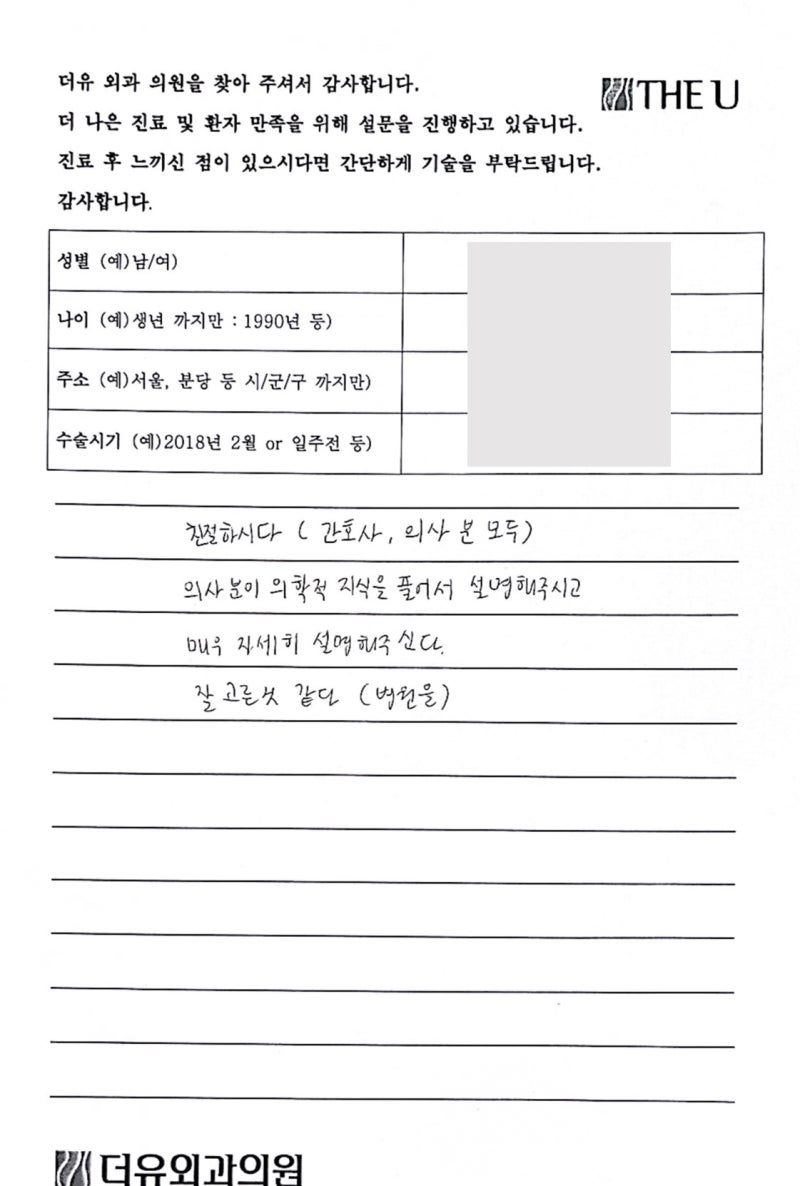 더유 외과 의원을 찾아 주셔서 감사합니다.
THE U
더 나은 진료 및 환자 만족을 위해 설문을 진행하고 있습니다.
진료 후 느끼신 점이 있으시다면 간단하게 기술을 부탁드립니다.
감사합니다.
성별 (예)남/여)
나이 (예)생년 까지만 : 1990년 등)
주소 (예)서울, 분당 등 시/군/구 까지만)
수술시기 (예)2018년 2월 or 일주전 등)
친절하시다 ( 간호사, 의사 분 모두)
의사분이 의학적 지식을 풀어서 설명해주시고
매우 자세히 설명해주신다.
잘 고른것 같다 (병원을)
더유외과의원